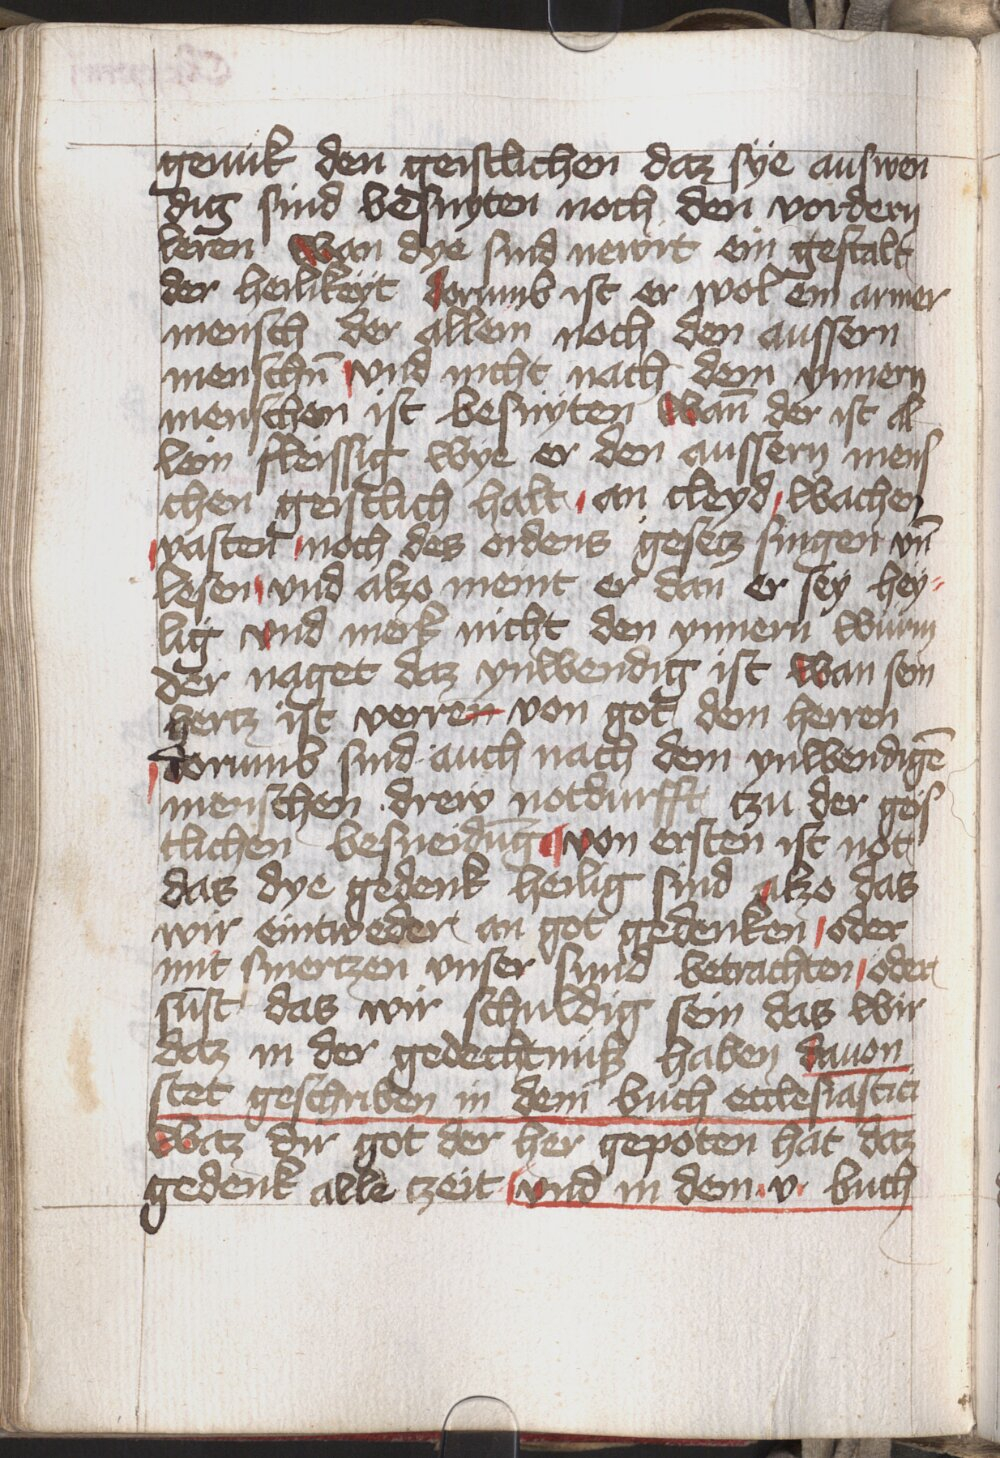 genuk den geistlichen daz sÿe auswen
dig sind besnyten noch den vordern
leren Wan dye sind newrt ein gestalt
der heilikeyt dorumb ist er wol ein armer
mensch der allein noch den aussern
menschn̄ vnd nicht nach dem ynnern
menschen ist besnyten Wan̄ der ist al
lein fleissig wye er den aussern mens
chen geistlich halt an cleyd wachen
vasten noch des ordens gesetz singen vn̄
lesen vnd alzo meint er dan er sey hey
lig vnd merk nicht den ynnern wurm
der naget daz ynwendig ist Wan sein
hertz ist verren von got dem herren
dorumb sind auch nach dem ynwendigē
menschen drew notdurfft tzu der geis
tlichen besneidūg von ersten ist not
das dye gedenk heilig sind alzo das
wir eintweder an got gedenken oder
mit smertzen vnser sund betrachten oder
sust das wir schuldig sein das wir
daz in der gedechtnusz haben dauon
stet geschriben in dem buch ecclesiastici
Waz dir got der her gepoten hat daz
gedenk alle tzeit vnd in dem v buch